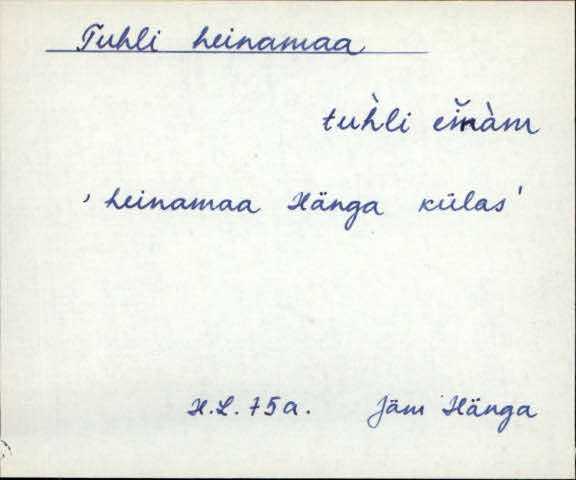 Tuhli heinamaa
tuh̀li eĭnàm
' heinamaa Hänga külas'
H.L. 75a. Jäm Hänga